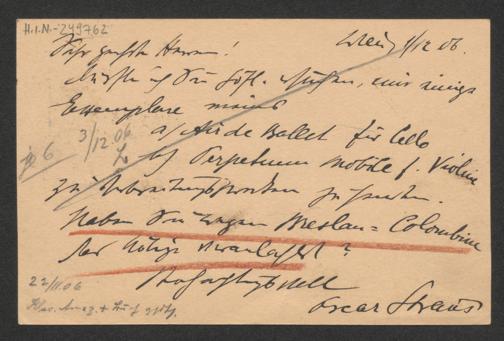 H.I.N.-249762
Wien 1/12 06.
Sehr geehrte Herren!
Dürfte ich Sie höfl. ersuchen, mir einige
Exemplare meines
3/12.06
a/ Air de Ballet für Cello
b/ Perpetuum mobile f. Violine
6
zu zu senden.
Haben Sie wegen Breslau = Colombine
das Nötige veranlasst?
Hochachtungsvoll
Oscar Straus
22/11.06